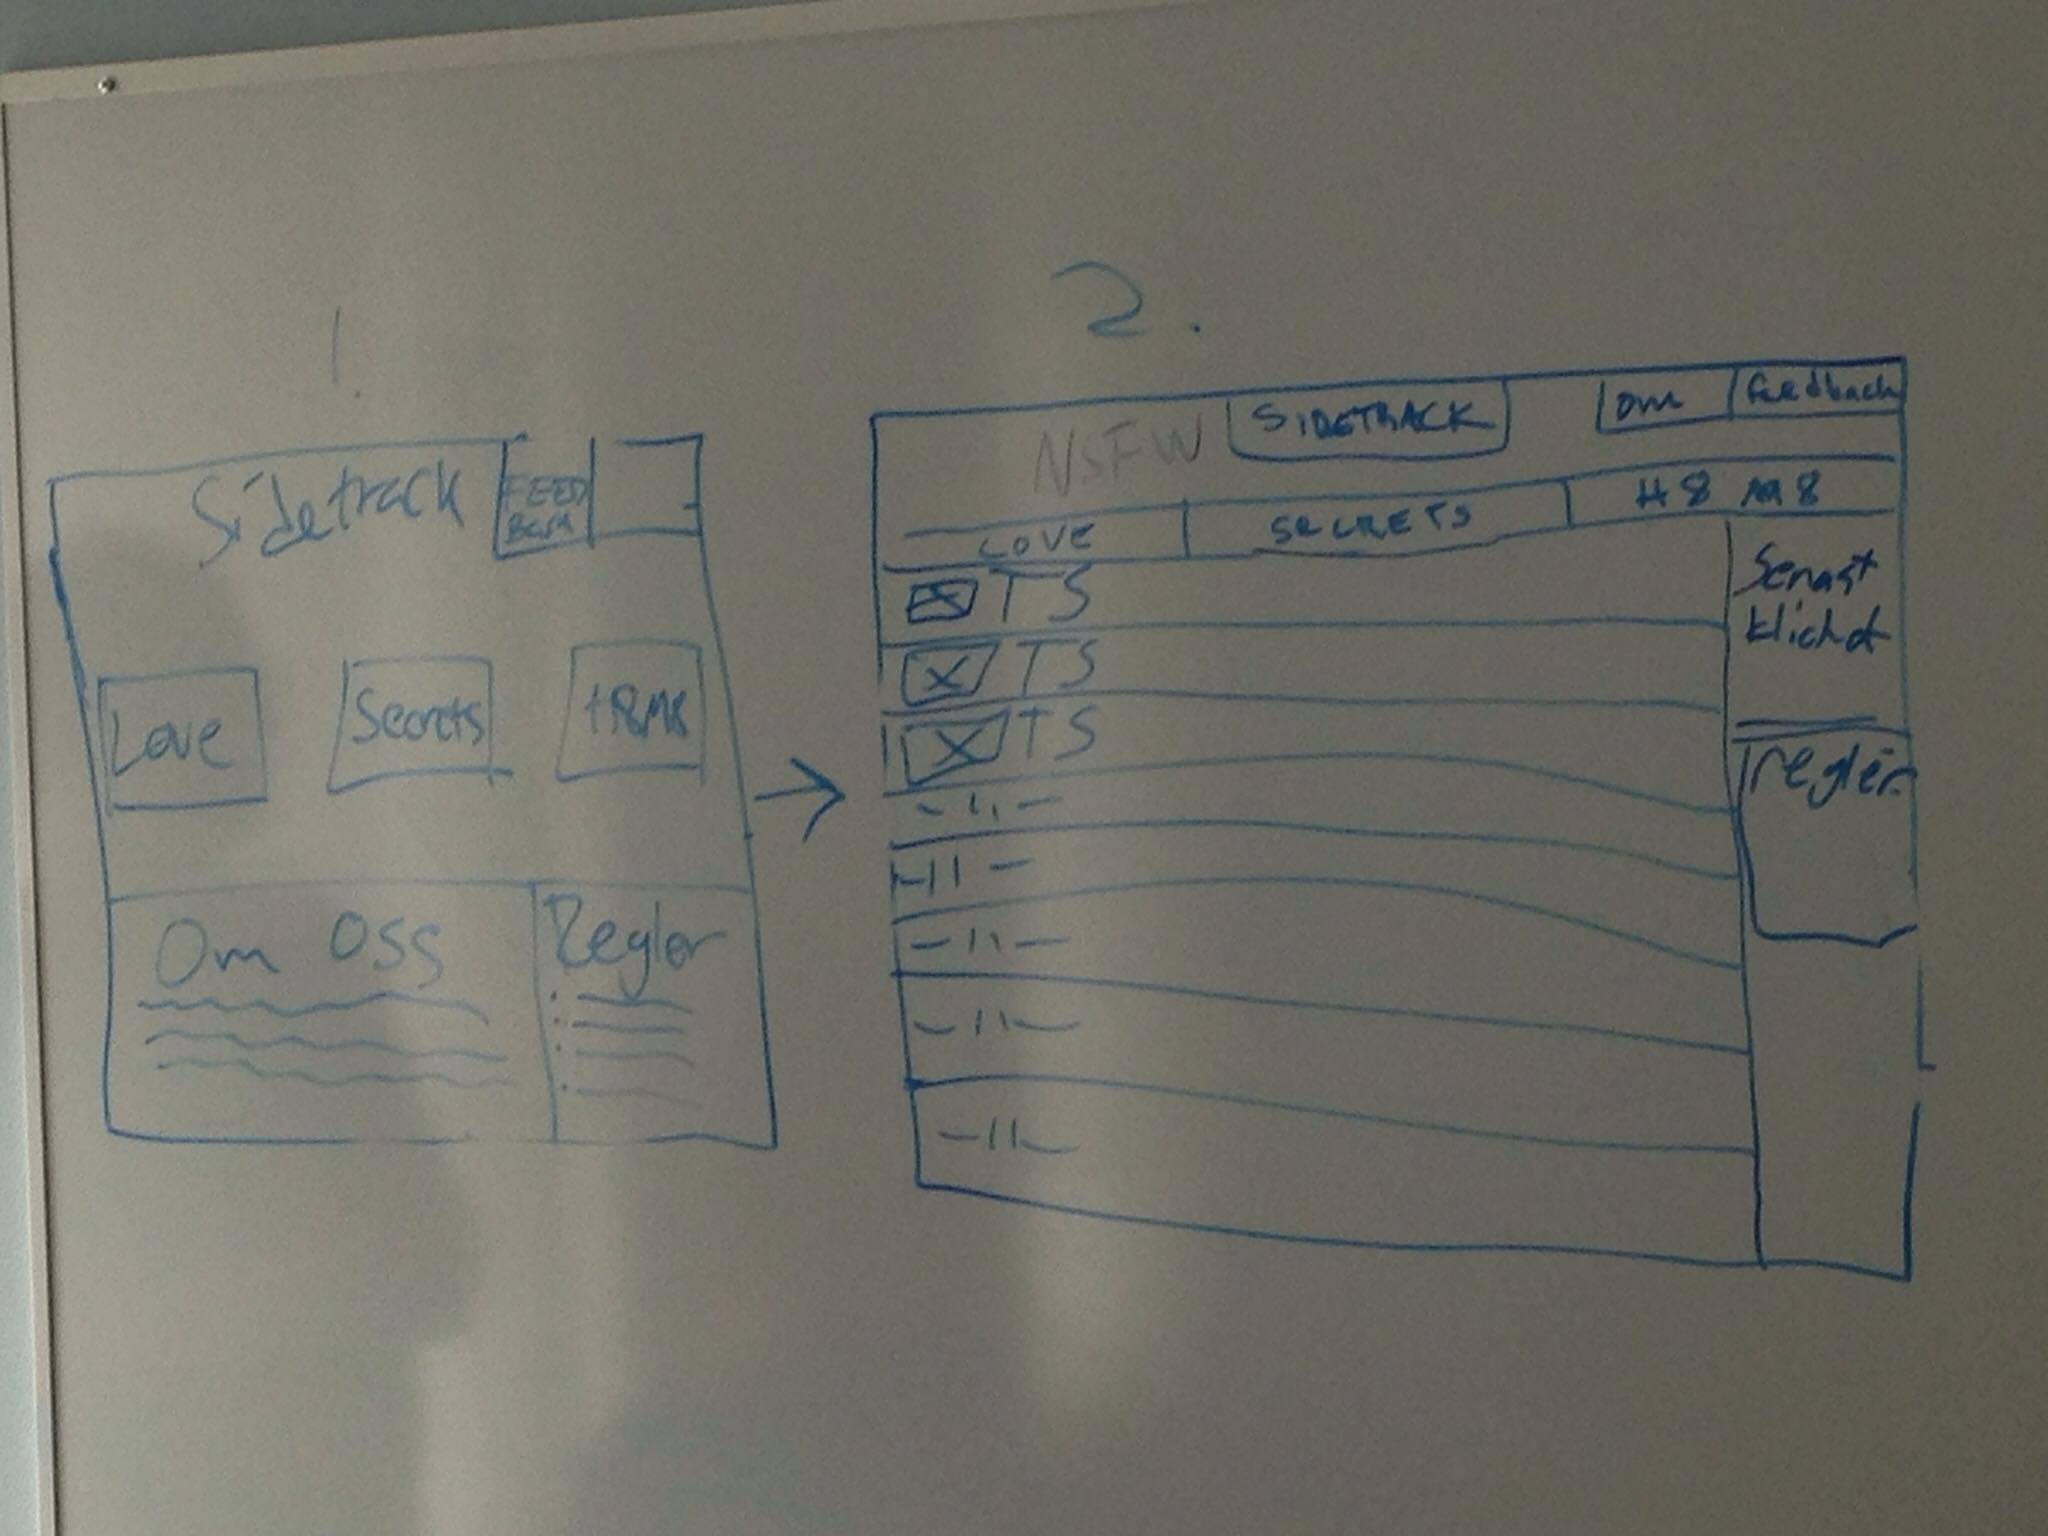 1.
Sidetrack
FEED
BACK
Love
Secrets
H8M8
Om Oss
Regler
2.
NSFW
SIDETRACK
om
feedback
LOVE
SECRETS
H8 M8
TS
TS
TS
-11-
-11-
-11-
-11-
-11-
Senast
klickat
regler